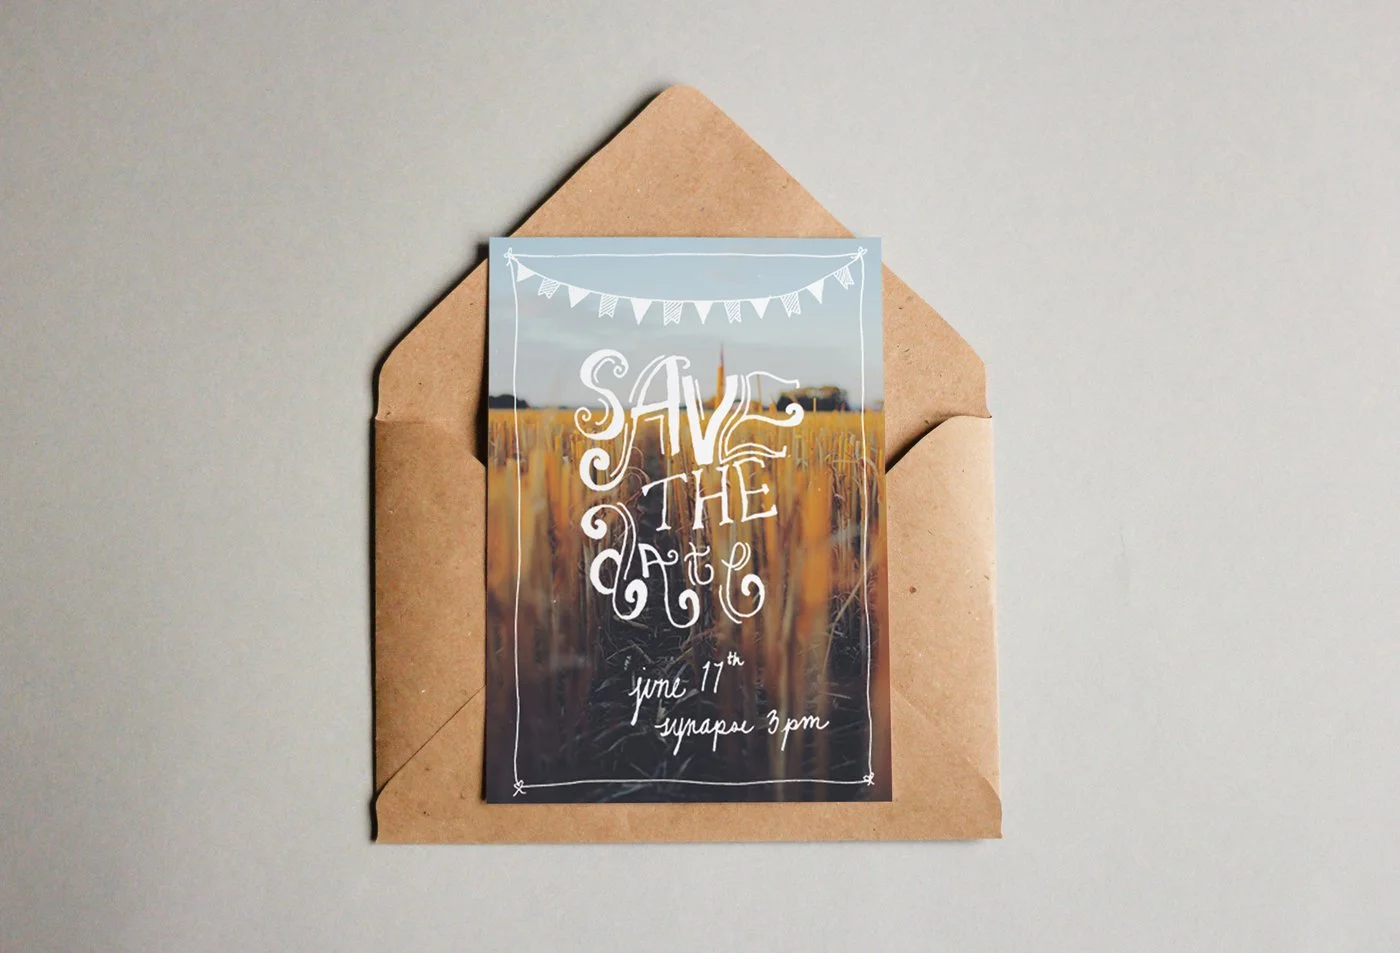 SAVE
THE
date
june 17th
synapse 3pm